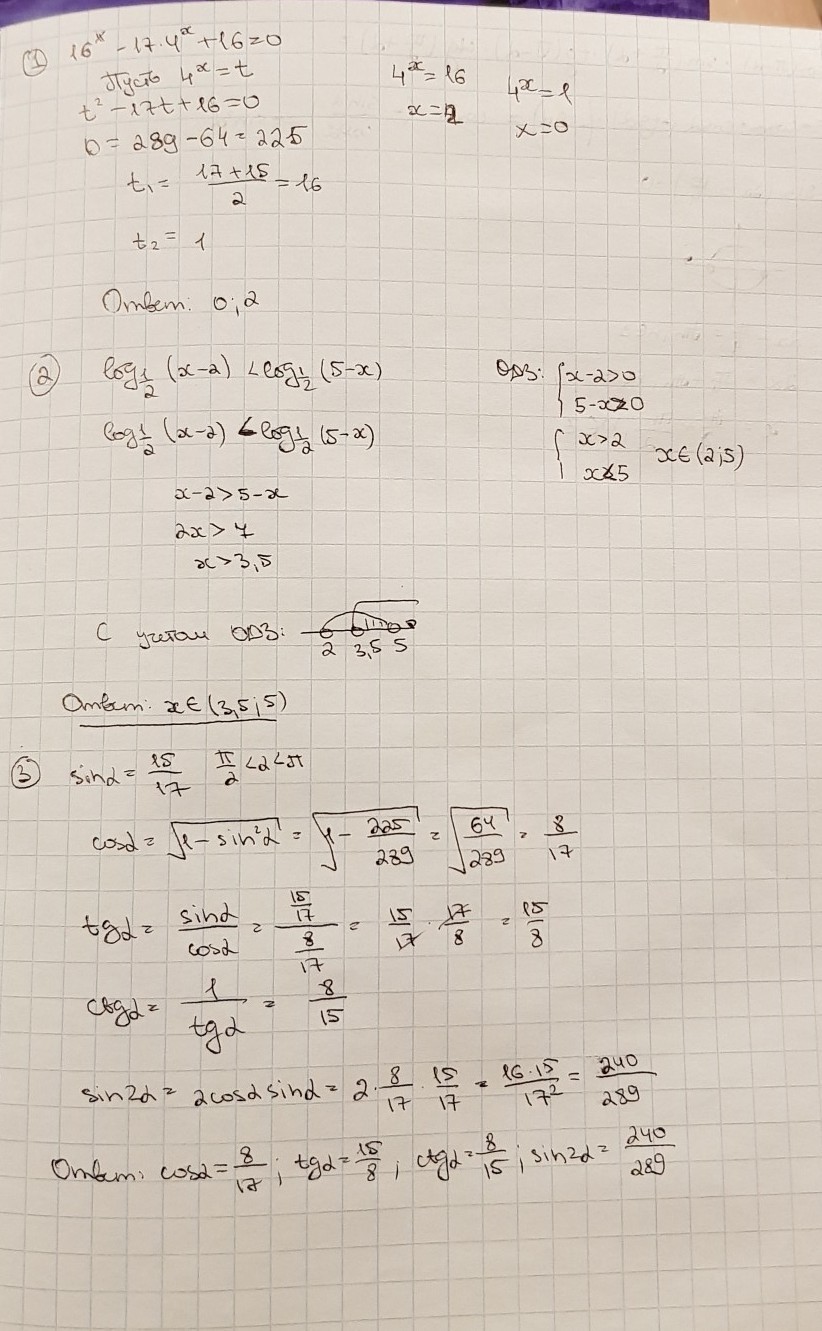 ① 16^x - 17·4^x + 16 = 0
Пусть 4^x = t
t² - 17t + 16 = 0
D = 289 - 64 = 225
t₁ = (17 + 15)/2 = 16
t₂ = 1
4^x = 16
x = 2
4^x = 1
x = 0
Ответ: 0; 2
② log_{1/2} (x-2) < log_{1/2} (5-x)
ОДЗ: { x-2>0
5-x>0
{ x>2
x<5 x∈(2;5)
log_{1/2} (x-2) < log_{1/2} (5-x)
x-2 > 5-x
2x > 7
x > 3,5
С учетом ОДЗ:
2 3,5 5
Ответ: x∈(3,5;5)
③ sinα = 15/17 π/2 < α < π
cosα = √(1 - sin²α) = √(1 - 225/289) = √(64/289) = 8/17
tgα = sinα/cosα = (15/17)/(8/17) = 15/17 · 17/8 = 15/8
ctgα = 1/tgα = 8/15
sin2α = 2cosα sinα = 2·8/17·15/17 = 16·15/17² = 240/289
Ответ: cosα = 8/17; tgα = 15/8; ctgα = 8/15; sin2α = 240/289